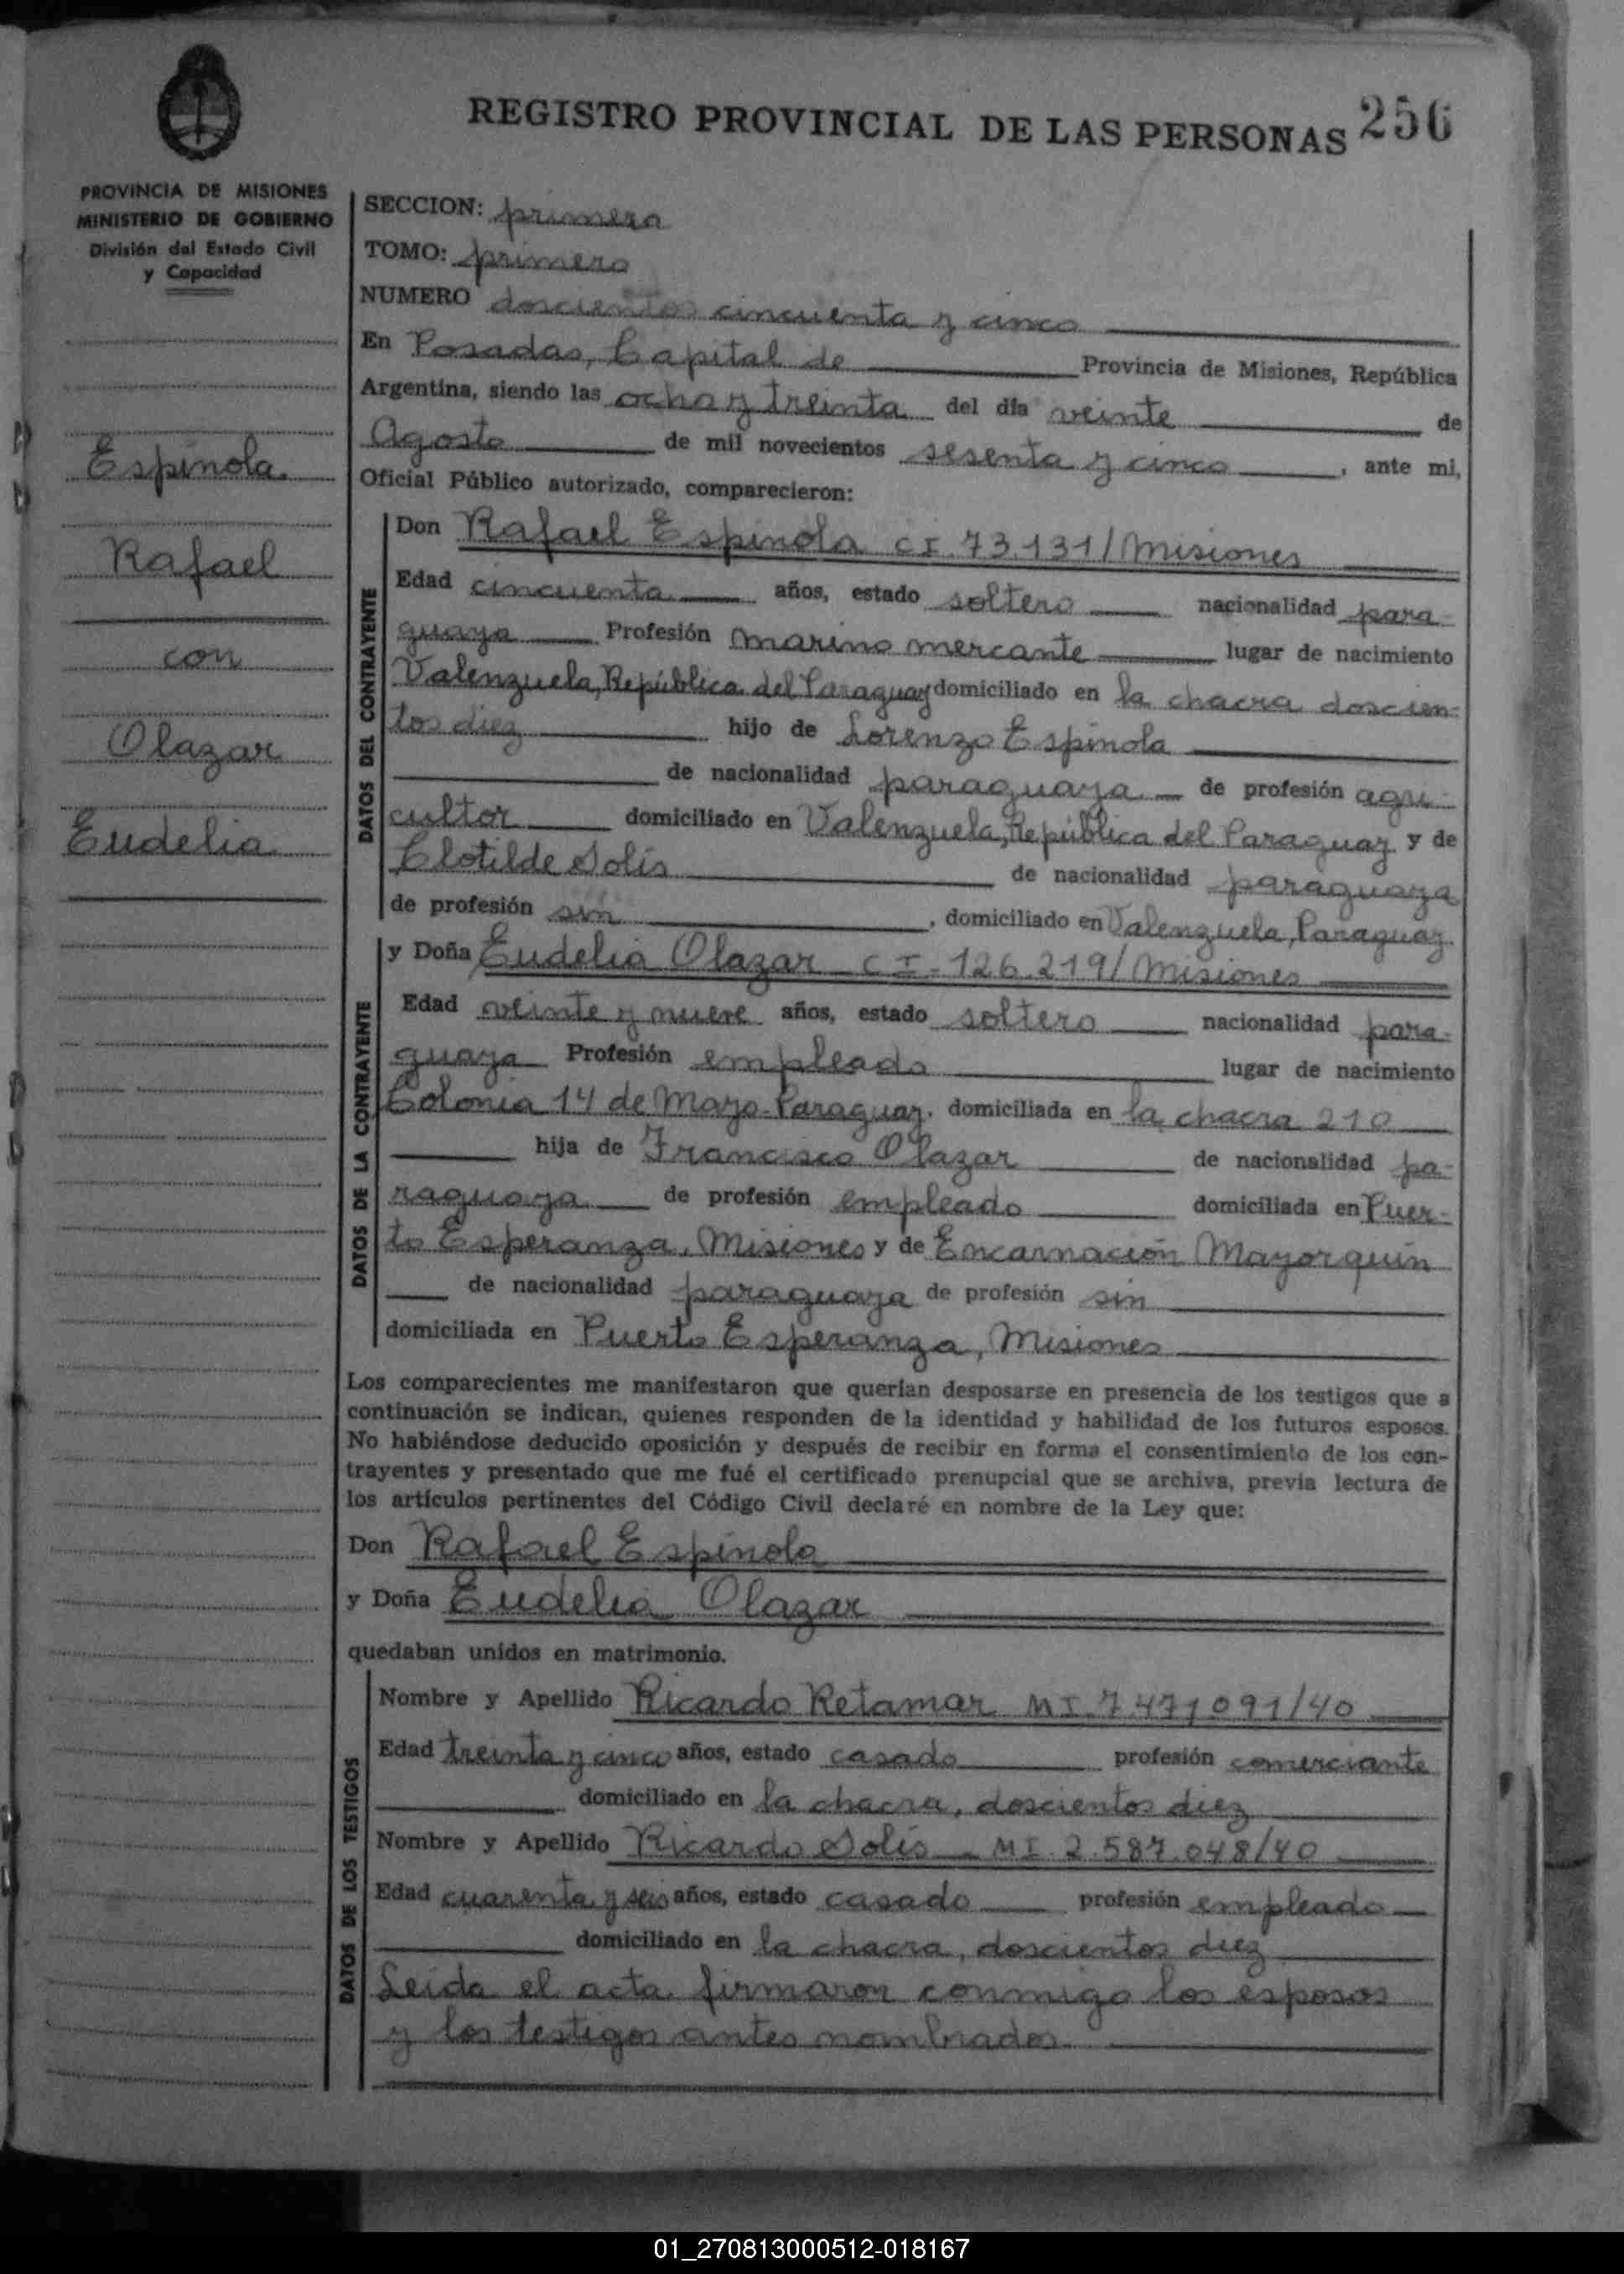 REGISTRO PROVINCIAL DE LAS PERSONAS 256
PROVINCIA DE MISIONES
MINISTERIO DE GOBIERNO
División del Estado Civil
y Capacidad
Espinola
Rafael
con
Olazar
Eudelia
SECCION: primera
TOMO: primero
NUMERO doscientos cincuenta y cinco
En Posadas, Capital de Provincia de Misiones, República
Argentina, siendo las ocho y treinta del día veinte de
Agosto de mil novecientos sesenta y cinco, ante mi,
Oficial Público autorizado, comparecieron:
DATOS DEL CONTRAYENTE
Don Rafael Espinola CI. 73.131/Misiones
Edad cincuenta años, estado soltero nacionalidad para-
guaya Profesión marino mercante lugar de nacimiento
Valenzuela, República del Paraguay domiciliado en la chacra doscien-
tos diez hijo de Lorenzo Espinola
de nacionalidad paraguaya de profesión agri-
cultor domiciliado en Valenzuela, República del Paraguay y de
Clotilde Solis de nacionalidad paraguaya
de profesión sin, domiciliado en Valenzuela, Paraguay.
DATOS DE LA CONTRAYENTE
y Doña Eudelia Olazar CI - 126.219/Misiones
Edad veinte y nueve años, estado soltero nacionalidad para-
guaya Profesión empleada lugar de nacimiento
Colonia 14 de Mayo-Paraguay. domiciliada en la chacra 210
hija de Francisco Olazar de nacionalidad pa-
raguaya de profesión empleado domiciliada en Puer-
to Esperanza, Misiones y de Encarnación Mayorquin
de nacionalidad paraguaya de profesión sin
domiciliada en Puerto Esperanza, Misiones
Los comparecientes me manifestaron que querían desposarse en presencia de los testigos que a
continuación se indican, quienes responden de la identidad y habilidad de los futuros esposos.
No habiéndose deducido oposición y después de recibir en forma el consentimiento de los con-
trayentes y presentado que me fué el certificado prenupcial que se archiva, previa lectura de
los artículos pertinentes del Código Civil declaré en nombre de la Ley que:
Don Rafael Espinola
y Doña Eudelia Olazar
quedaban unidos en matrimonio.
DATOS DE LOS TESTIGOS
Nombre y Apellido Ricardo Retamar MI. 7.471.091/40
Edad treinta y cinco años, estado casado profesión comerciante
domiciliado en la chacra, doscientos diez
Nombre y Apellido Ricardo Solis - MI. 2.587.048/40
Edad cuarenta y seis años, estado casado profesión empleado
domiciliado en la chacra, doscientos diez
Leida el acta firmaron conmigo los esposos
y los testigos antes nombrados
01_270813000512-018167